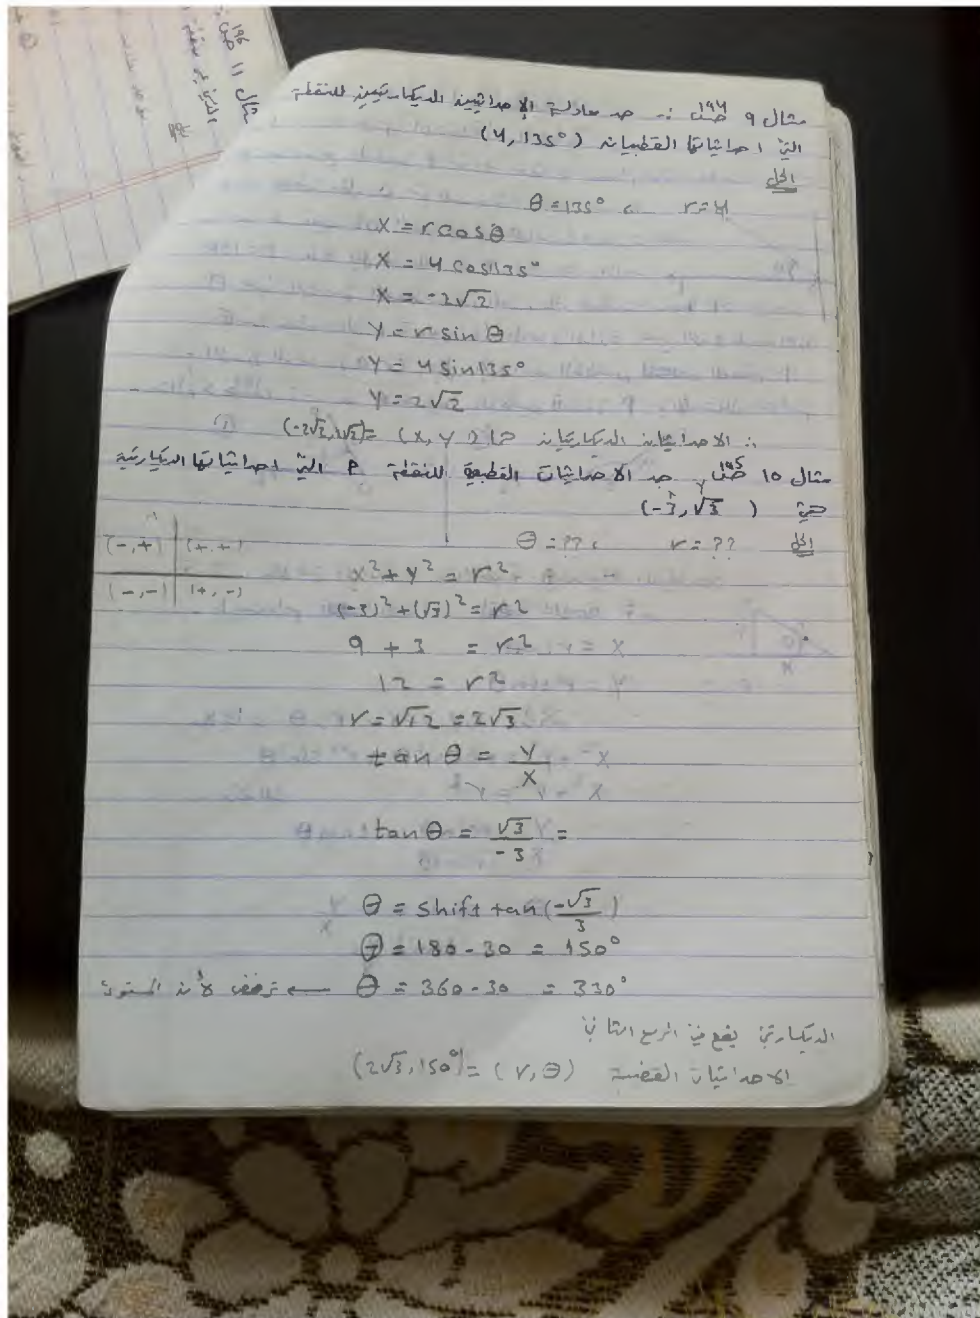 مثال ١١ ص ١٩٦
مثال ٩ ص ١٩٤ :- جد معادلة الإحداثيين الديكارتيين للنقطة
التي احداثياتها القطبيان (4, 135°)
الحل
r = 4 ، θ = 135°
X = r cos θ
X = 4 cos 135°
X = -2√2
Y = r sin θ
Y = 4 sin 135°
Y = 2√2
∴ الاحداثيان الديكارتيان هما (X, Y) = (-2√2, 2√2)
مثال ١٥ ص ١٩٥ جد الاحداثيات القطبية للنقطة P التي احداثياتها الديكارتية
هي (-3, √3)
الحل r = ?? ، θ = ??
(-,+) (+,+)
(-,-) (+,-)
x² + y² = r²
(-3)² + (√3)² = r²
9 + 3 = r²
12 = r²
r = √12 = 2√3
tan θ = Y/X
tan θ = √3/-3 =
θ = shift tan (-√3/3)
θ = 180 - 30 = 150°
θ = 360 - 30 = 330° ترفض لأن المستوى
الديكارتي يقع في الربع الثاني
الاحداثيات القطبية (r, θ) = (2√3, 150°)